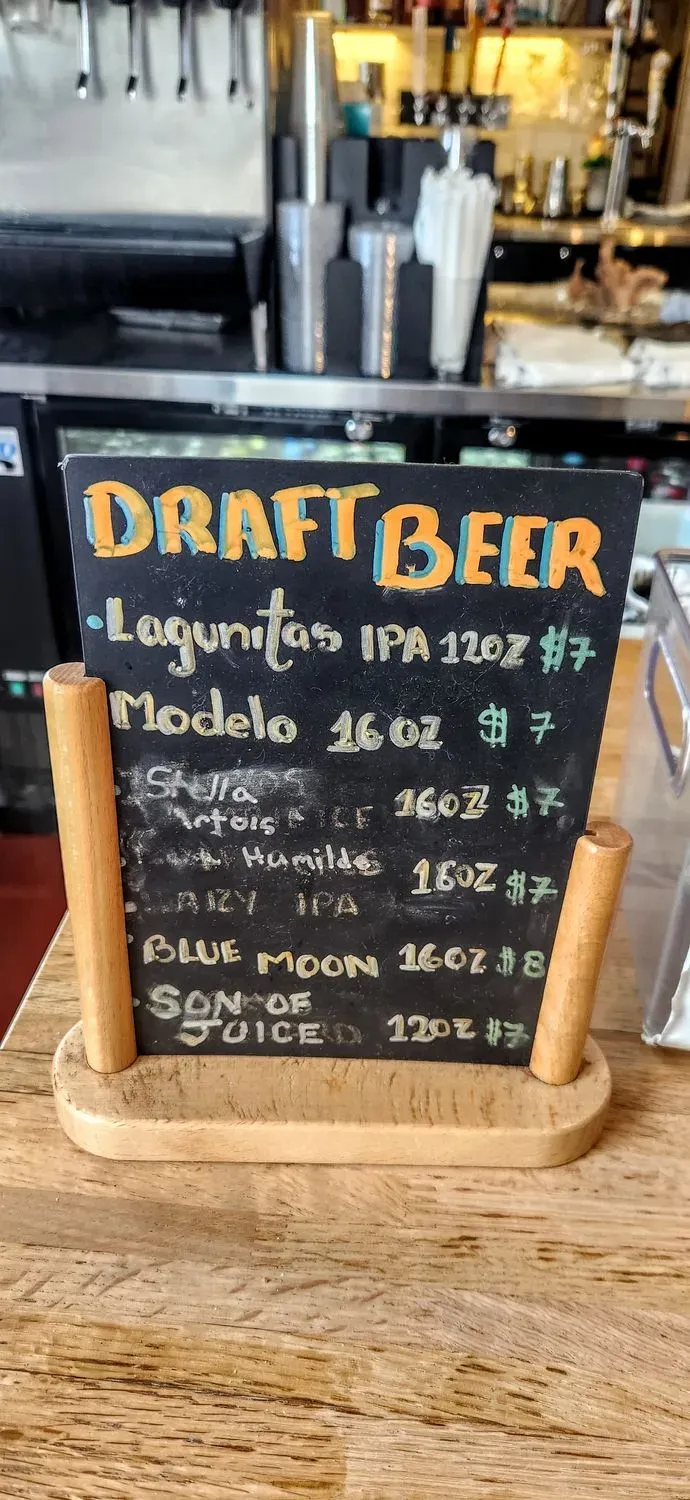 DRAFT BEER
• Lagunitas IPA 12OZ $7
Modelo 16OZ $7
Stella
Artois 16OZ $7
Humilde 16OZ $7
BLUE MOON 16OZ $8
SON OF
JUICE 12OZ $7